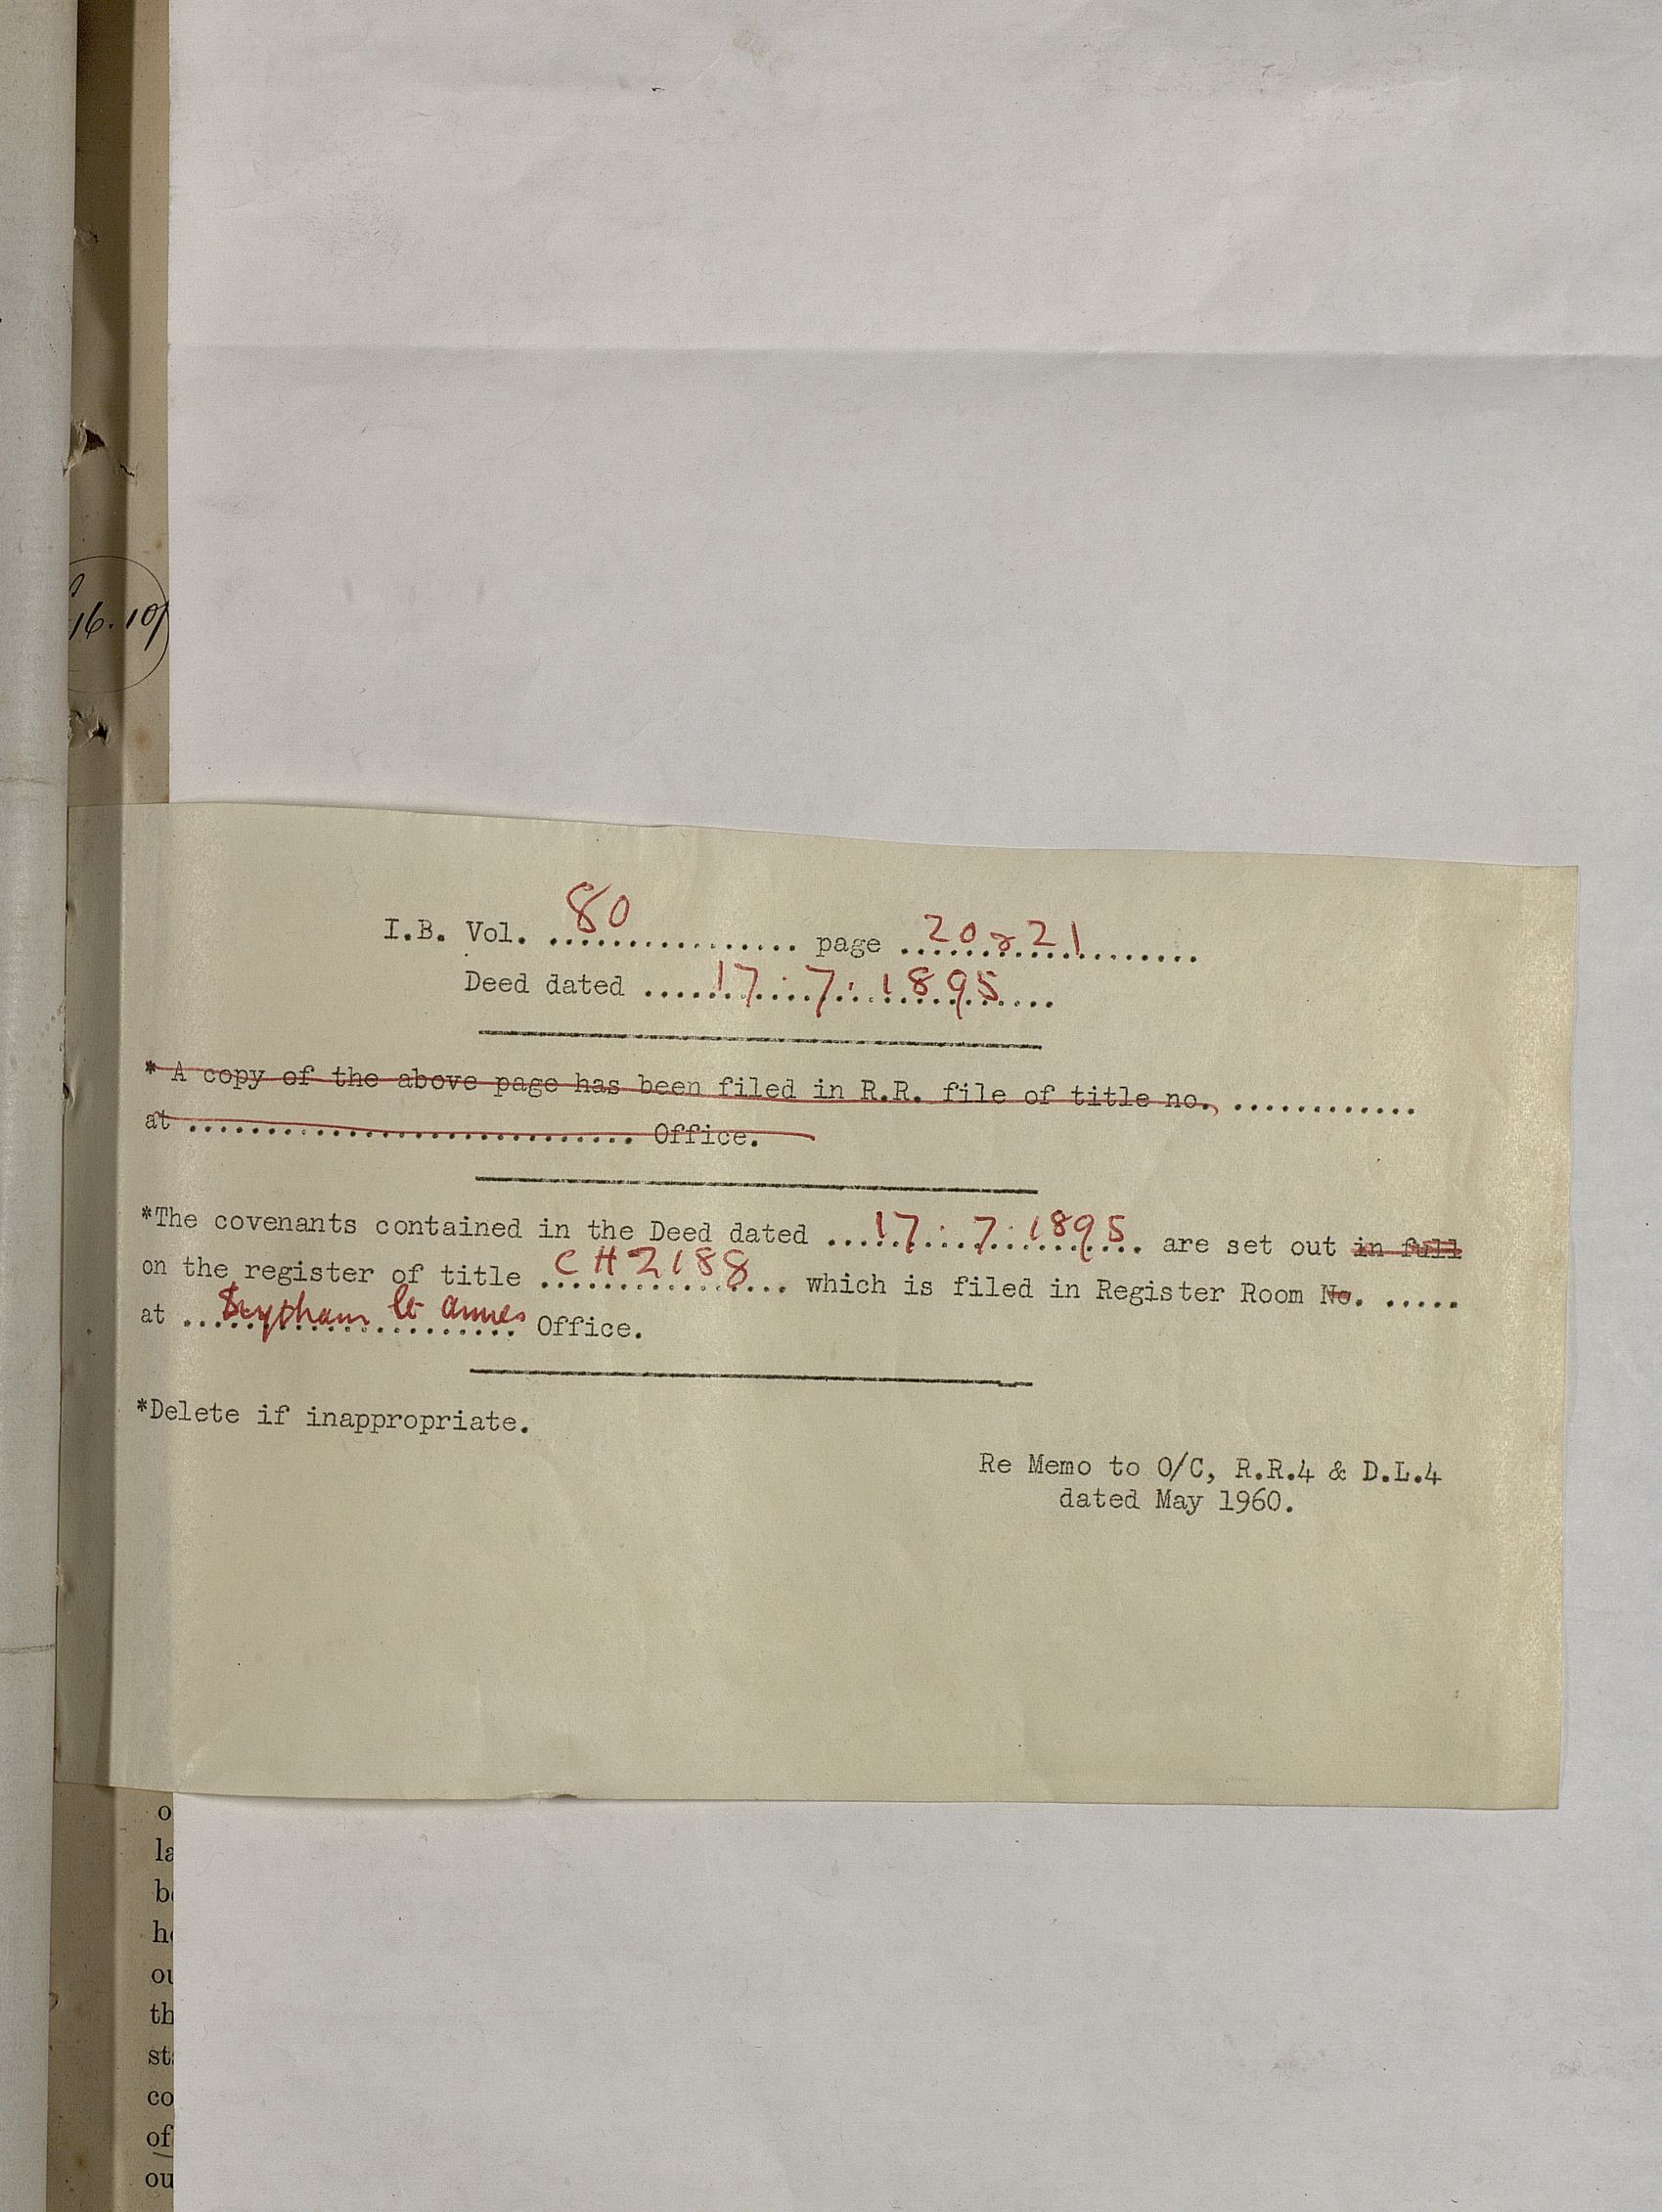 16.10/
I.B. Vol. 80 ................ page 20 & 21
Deed dated 17:7:1895
* A copy of the above page has been filed in R.R. file of title no. ............
at ............................ Office.
*The covenants contained in the Deed dated 17:7:1895 are set out in full
on the register of title CH2188 which is filed in Register Room No. .....
at Lytham St Annes Office.
*Delete if inappropriate.
Re Memo to O/C, R.R.4 & D.L.4
dated May 1960.
o
la
be
he
ou
th
st
co
of
ou